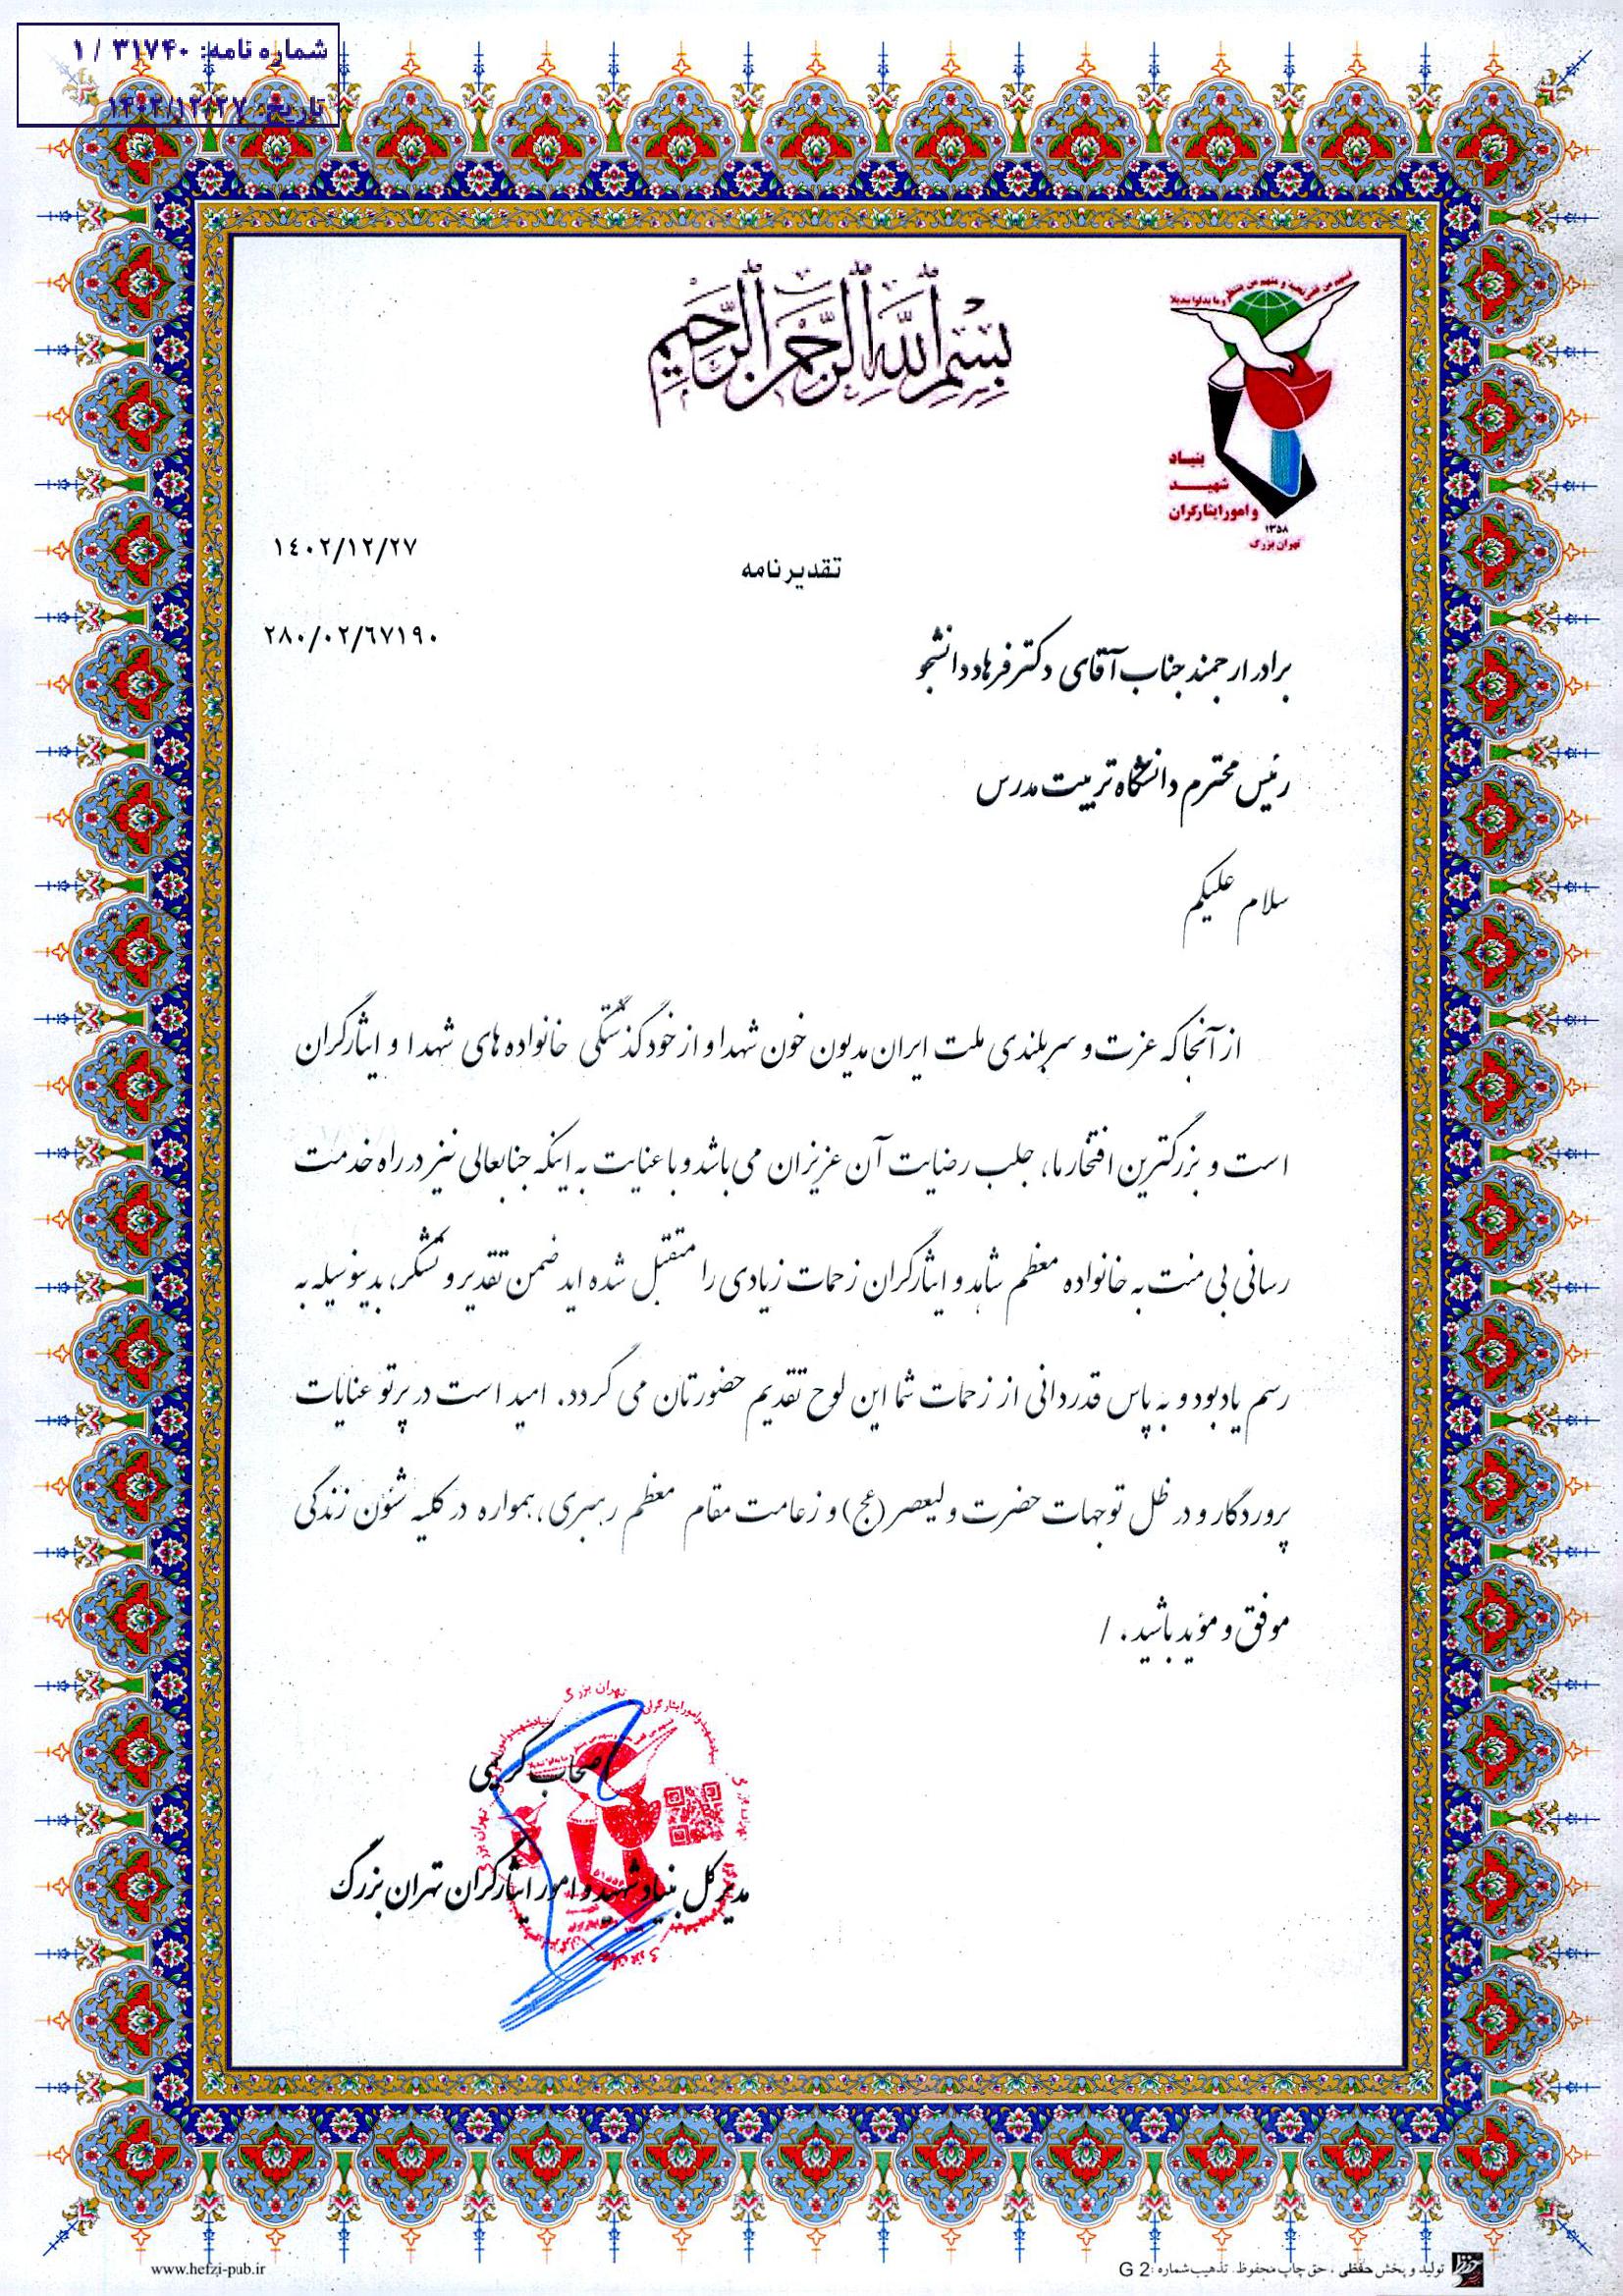 شماره نامه: ۳۱۷۴۰ / ۱
تاریخ: ۱۴۰۲/۱۲/۲۷
بسم الله الرحمن الرحیم
فمنهم من قضی نحبه و منهم من ینتظر و ما بدلوا تبدیلا
بنیاد
شهید
و امور ایثارگران
۱۳۵۸
تهران بزرگ
۱٤۰۲/۱۲/۲۷
تقدیرنامه
۲۸۰/۰۲/٦۷۱۹۰
برادر ارجمند جناب آقای دکتر فرهاد دانشجو
رئیس محترم دانشگاه تربیت مدرس
سلام علیکم
از آنجا که عزت و سربلندی ملت ایران مدیون خون شهدا و از خود گذشتگی خانواده های شهدا و ایثارگران
است و بزرگترین افتخار ما، جلب رضایت آن عزیزان می باشد و با عنایت به اینکه جنابعالی نیز در راه خدمت
رسانی بی منت به خانواده معظم شاهد و ایثارگران زحمات زیادی را متقبل شده اید ضمن تقدیر و تشکر، بدینوسیله به
رسم یادبود و به پاس قدردانی از زحمات شما این لوح تقدیم حضورتان می گردد. امید است در پرتو عنایات
پروردگار و در ظل توجهات حضرت ولیعصر (عج) و زعامت مقام معظم رهبری، همواره در کلیه شئون زندگی
موفق و مؤید باشید. /
تهران بزرگ
اصحاب کریمی
مدیرکل بنیاد شهید و امور ایثارگران تهران بزرگ
www.hefzi-pub.ir
تولید و پخش حفظی ، حق چاپ محفوظ. تذهیب شماره: G 2